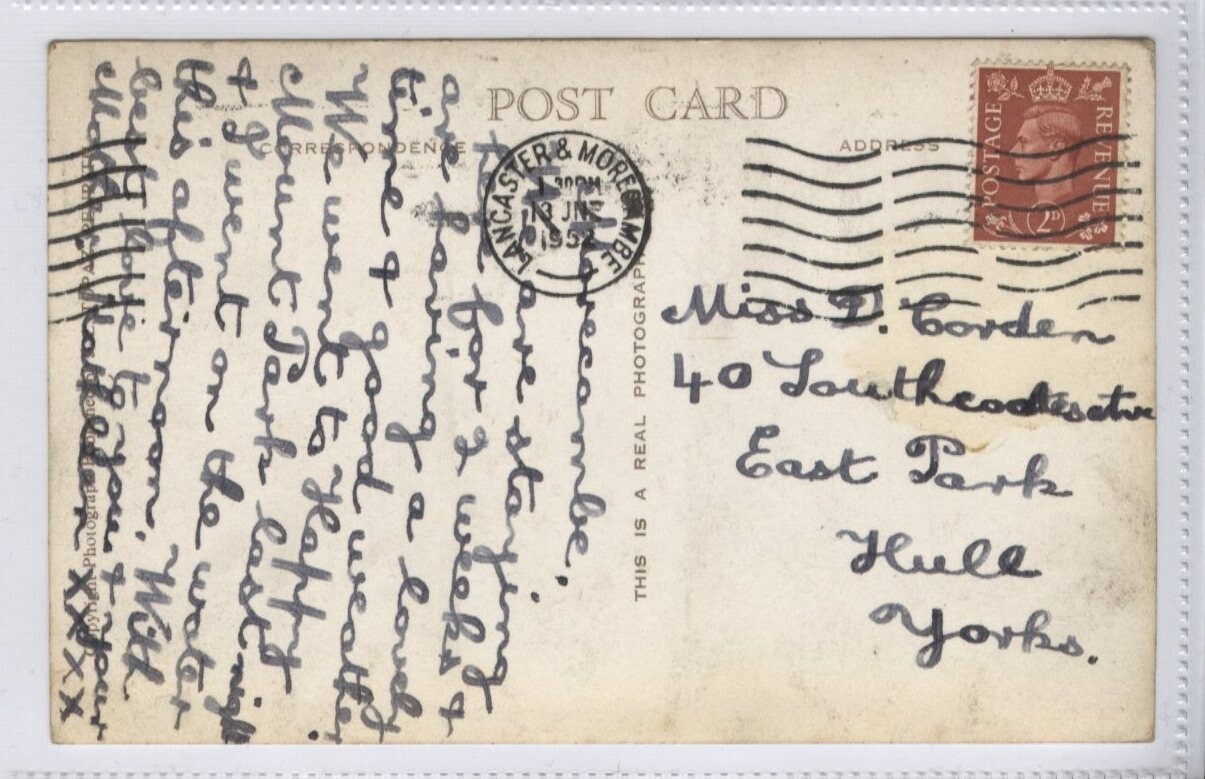 POST CARD
CORRESPONDENCE
ADDRESS
POSTAGE
REVENUE
2D
LANCASTER & MORECAMBE
13 JNE
1952
THIS IS A REAL PHOTOGRAPH
Miss D. Corden
40
East Park
Hull
Yorks.
Morecambe,
are staying
for 2 weeks &
are having a lovely
time & good weather,
We went to Happy
Mount Park last night
& I went on the water
this afternoon, With
best love to you & your
Mother
x x x x